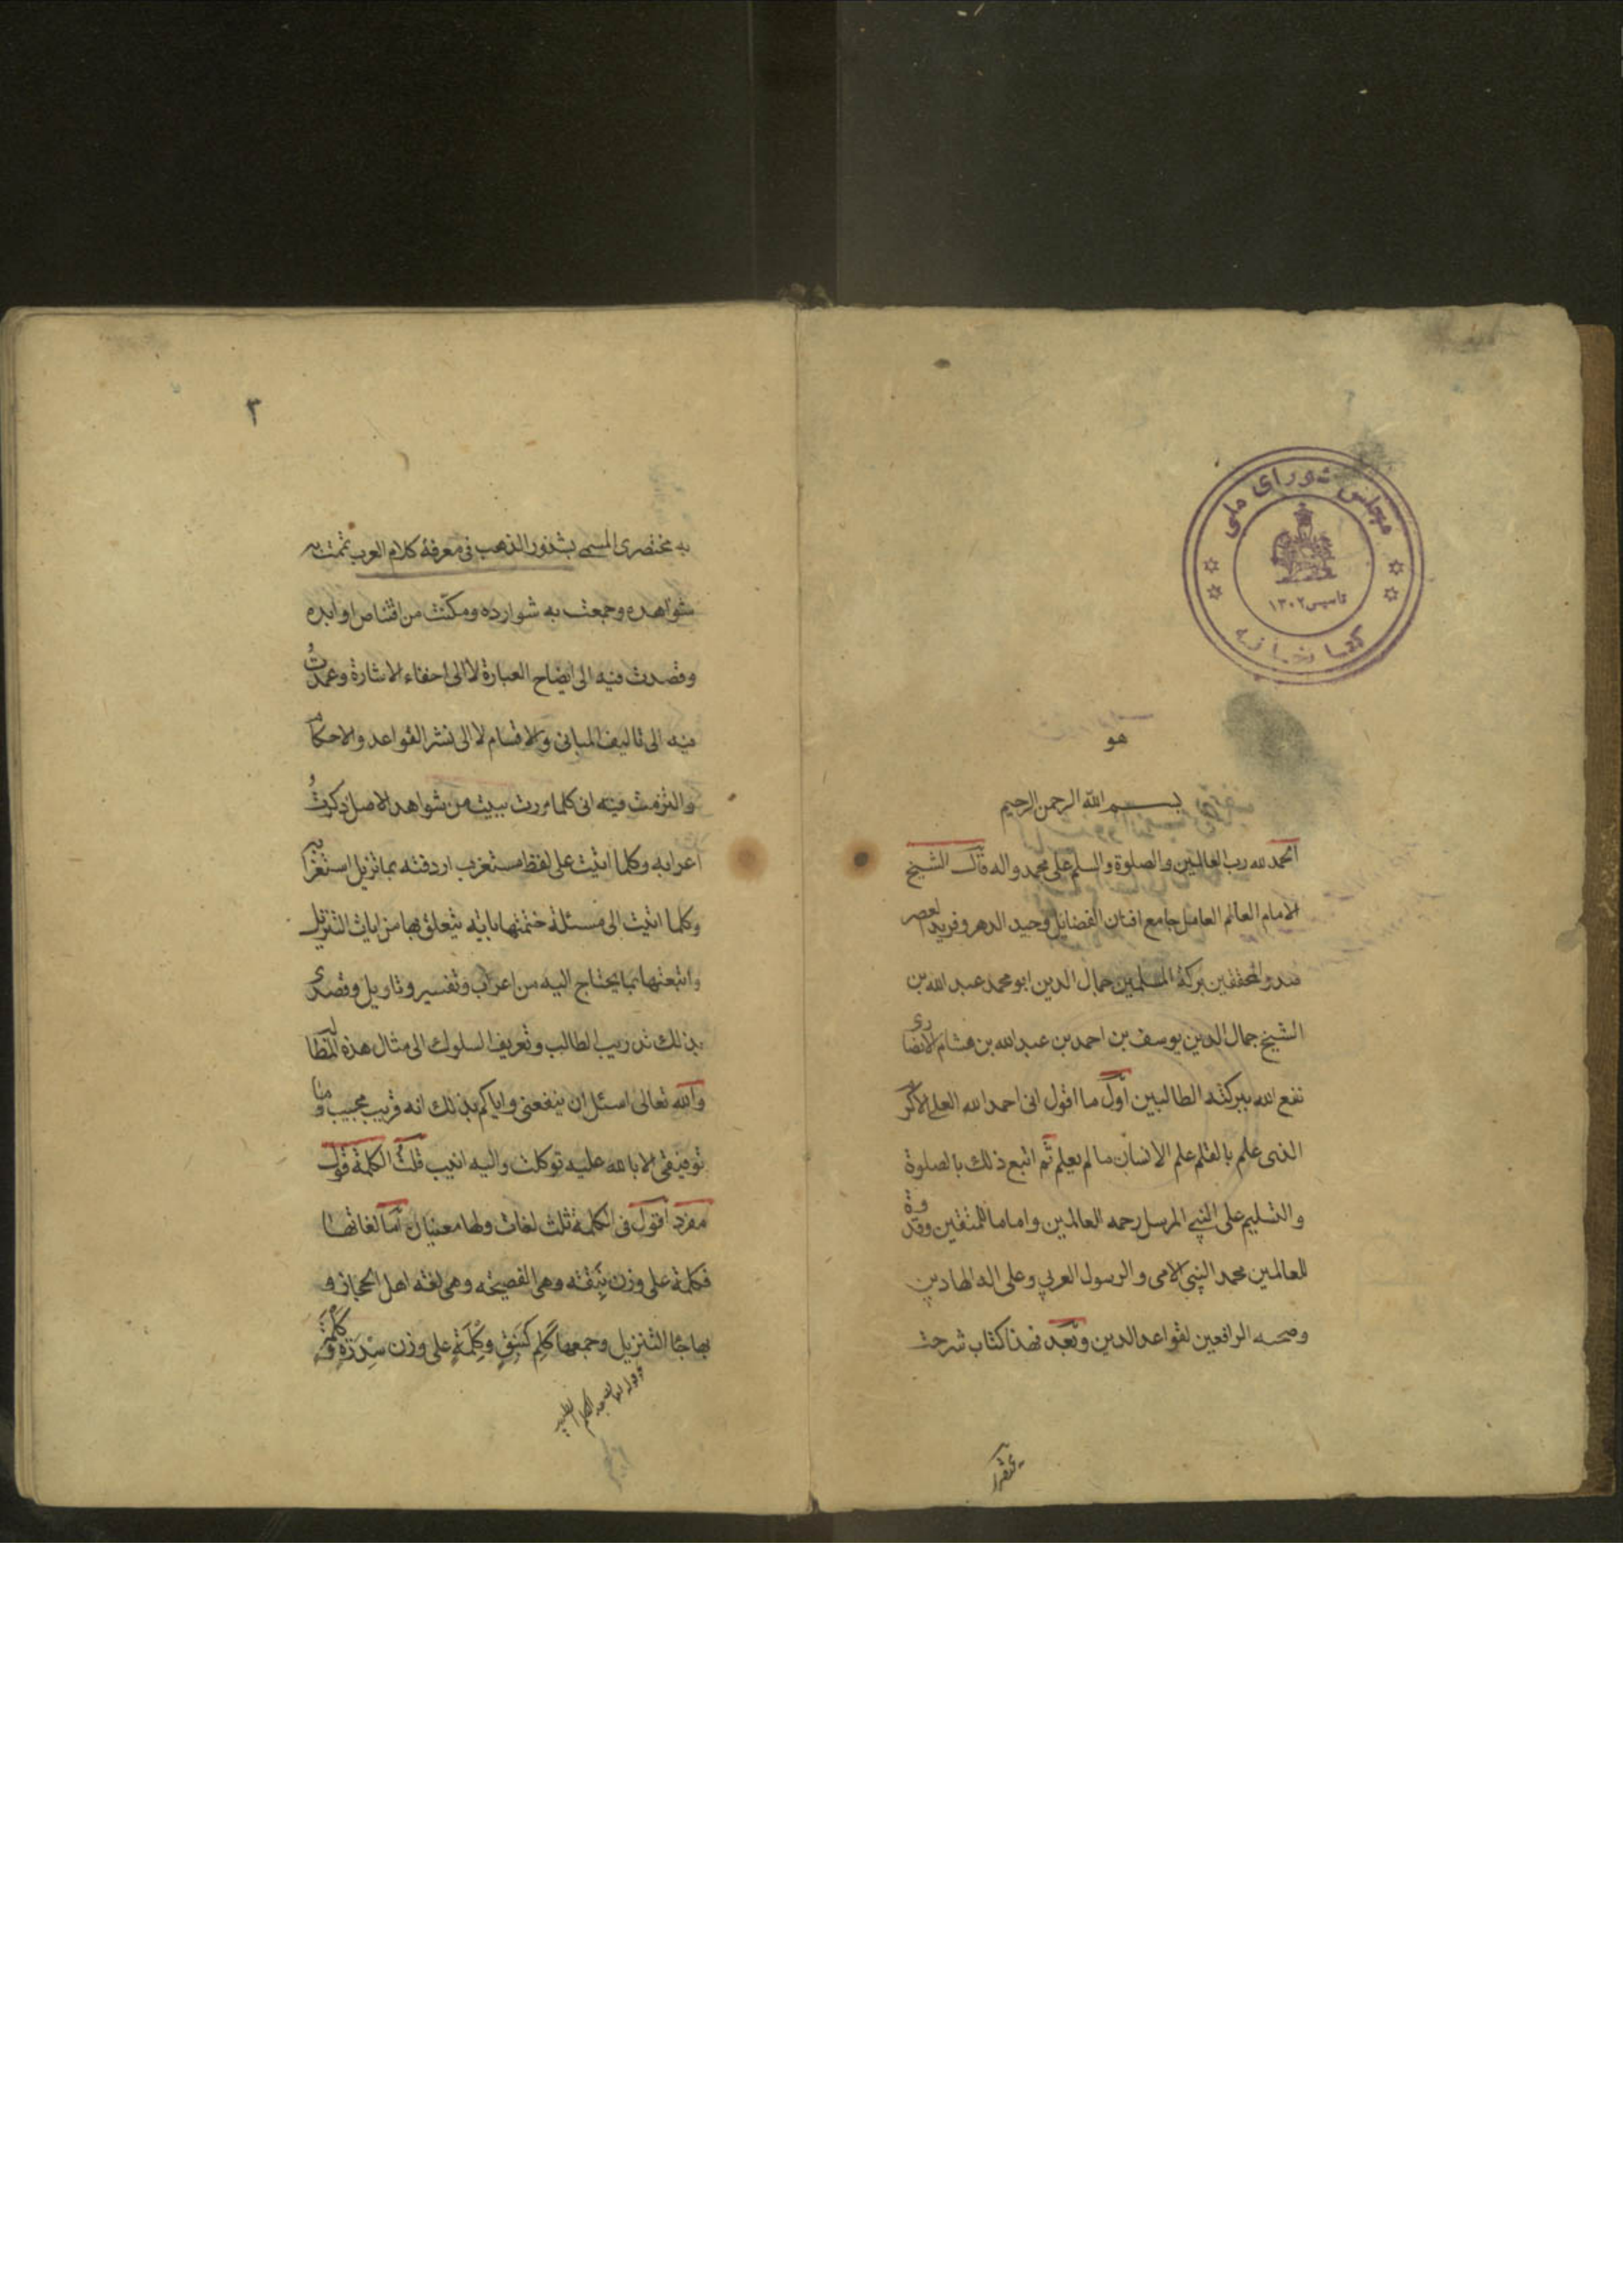 مجلس شورای ملی
تاسیس ۱۳۰۲
کتابخانه
هو
بسم الله الرحمن الرحيم
الحمد لله رب العالمين والصلوة والسلم على محمد واله قال الشيخ
الامام العالم العامل جامع افنان الفضائل وحيد الدهر وفريد العصر
المحققين بركة المسلمين جمال الدين ابو محمد عبد الله بن
الشيخ جمال الدين يوسف بن احمد بن عبد الله بن هشام الانصارى
نفع الله ببركته الطالبين اول ما اقول انى احمد الله العلى الاكرم
الذى علم بالقلم علم الانسان ما لم يعلم ثم اتبع ذلك بالصلوة
والتسليم على النبي المرسل رحمه العالمين واماما للمتقين وقدوة
للعالمين محمد النبي الامى والرسول العربي وعلى اله الهادين
وصحبه الرافعين لقواعد الدين وبعد فهذا كتاب شرحت
۳
به مختصرى المسمى بشذور الذهب فى معرفة كلام العرب تممت به
شواهده وجمعت به شوارده ومكنت من اقتناص اوابده
وقصدت فيه الى ايضاح العبارة لا الى اخفاء الاشارة وعمدت
فيه الى تاليف المبانى والاقسام لا الى نشر القواعد والاحكام
والتزمت فيه انى كلما مررت ببيت من شواهد الاصل ذكرت
اعرابه وكلما اتيت على لفظ مستغرب اردفته بما يزيل استغرابه
وكلما اتيت الى مسئلة ختمتها باية يتعلق بها من ايات التنزيل
واتبعتها بما يحتاج اليه من اعراب وتفسير وتاويل وقصدى
بذلك تدريب الطالب وتعريف السلوك الى مثال هذه المطالب
والله تعالى اسئل ان ينفعنى واياكم بذلك انه قريب مجيب وما
توفيقى الا بالله عليه توكلت واليه انيب قلت الكلمة قول
مفرد اقول فى الكلمة ثلث لغات ولها معنيان اما لغاتها
فكلمة على وزن نَبِقَه وهى الفصيحه وهى لغة اهل الحجاز و
بها جاء التنزيل وجمعها كَلِم كَنَبِقٍ وكِلْمَةٍ على وزن سِدْرَةٍ و كَلْمَة